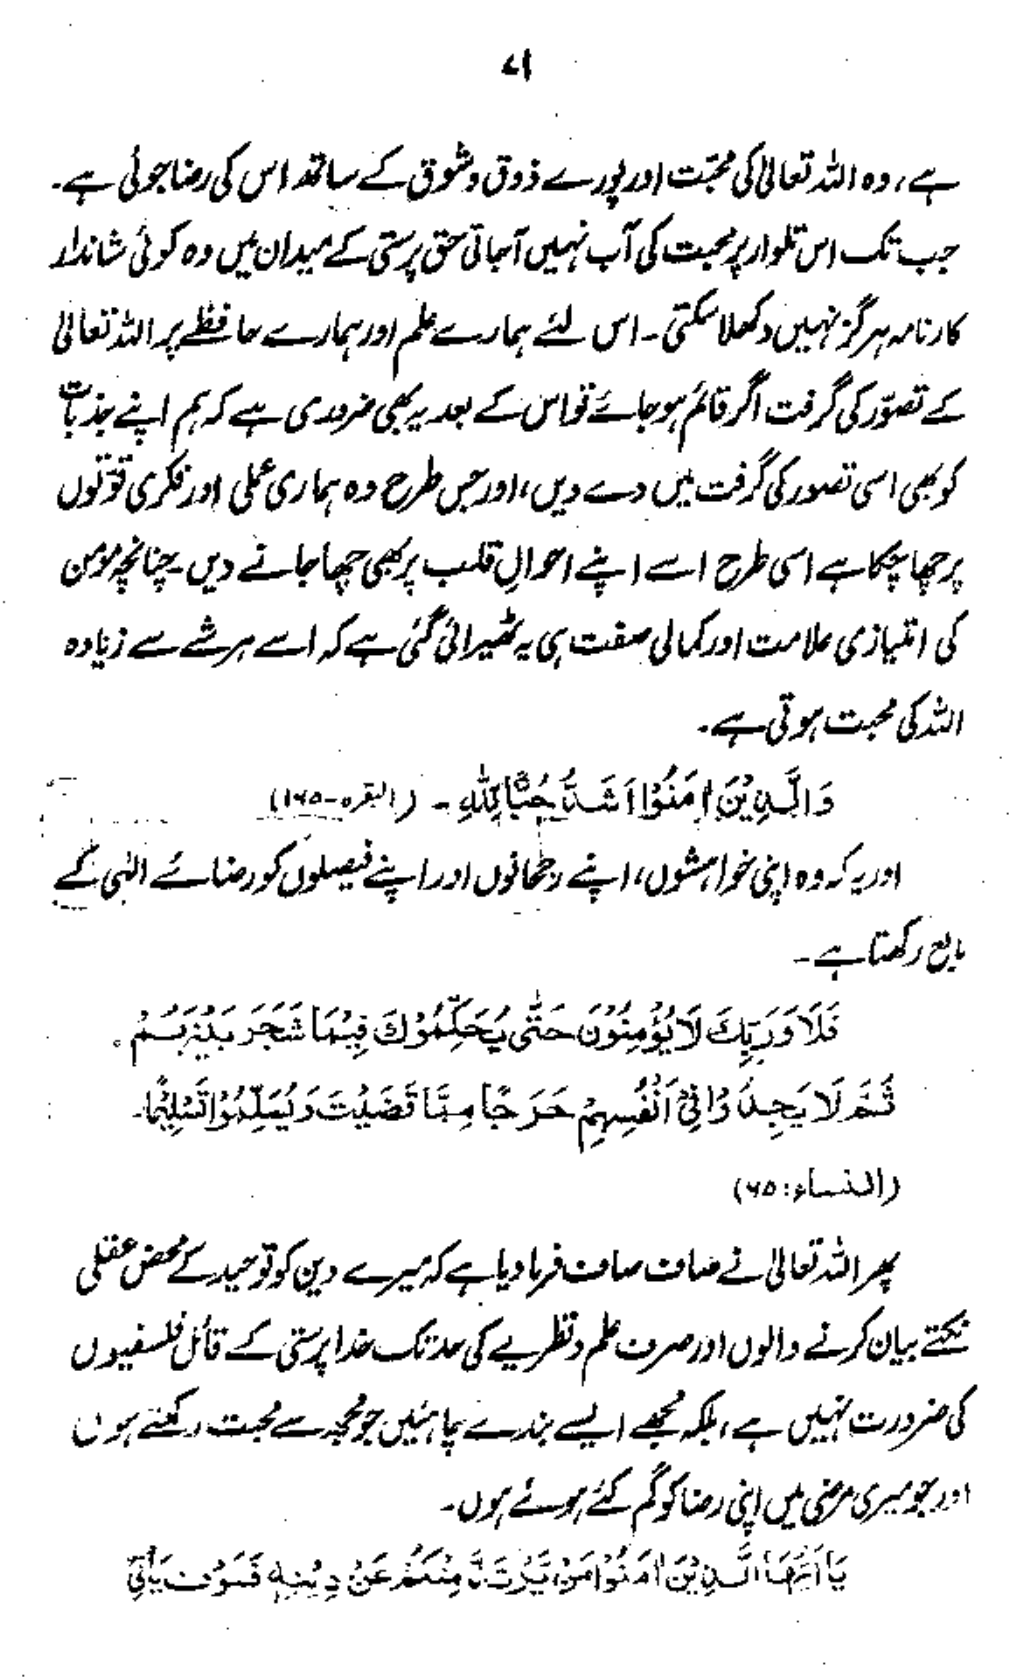 ۷۱
ہے، وہ اللہ تعالیٰ کی محبّت اور پورے ذوق و شوق کے ساتھ اس کی رضا جوئی ہے۔
جب تک اس تلوار پر محبت کی آب نہیں آجاتی حق پرستی کے میدان میں وہ کوئی شاندار
کارنامہ ہرگز نہیں دکھلا سکتی۔ اس لئے ہمارے علم اور ہمارے حافظے پر اللہ تعالیٰ
کے تصوّر کی گرفت اگر قائم ہو جائے تو اس کے بعد یہ بھی ضروری ہے کہ ہم اپنے جذبات
کو بھی اسی تصور کی گرفت میں دے دیں، اور جس طرح وہ ہماری عملی اور فکری قوّتوں
پر چھا چکا ہے اسی طرح اسے اپنے احوالِ قلب پر بھی چھا جانے دیں۔ چنانچہ مومن
کی امتیازی علامت اور کمالی صفت ہی یہ ٹھیرائی گئی ہے کہ اسے ہر شے سے زیادہ
اللہ کی محبت ہوتی ہے۔
وَالَّذِیْنَ اٰمَنُوْا اَشَدُّ حُبًّا لِّلّٰهِ ۔ (البقرہ-۱۶۵)
اور یہ کہ وہ اپنی خواہشوں، اپنے رجحانوں اور اپنے فیصلوں کو رضائے الٰہی کے
تابع رکھتا ہے۔
فَلَا وَرَبِّكَ لَا یُؤْمِنُوْنَ حَتّٰی یُحَكِّمُوْكَ فِیْمَا شَجَرَ بَیْنَهُمْ
ثُمَّ لَا یَجِدُوْا فِیْ اَنْفُسِهِمْ حَرَجًا مِمَّا قَضَیْتَ وَیُسَلِّمُوْا تَسْلِیْمًا۔
(النساء: ۶۵)
پھر اللہ تعالیٰ نے صاف صاف فرما دیا ہے کہ میرے دین کو توحید کے محض عقلی
نکتے بیان کرنے والوں اور صرف علم و نظریے کی حد تک خدا پرستی کے قائل فلسفیوں
کی ضرورت نہیں ہے، بلکہ مجھے ایسے بندے چاہئیں جو مجھ سے محبت رکھتے ہوں
اور جو میری مرضی میں اپنی رضا کو گم کئے ہوئے ہوں۔
یَا اَیُّهَا الَّذِیْنَ اٰمَنُوْا مَنْ یَّرْتَدَّ مِنْكُمْ عَنْ دِیْنِهٖ فَسَوْفَ یَأْتِی